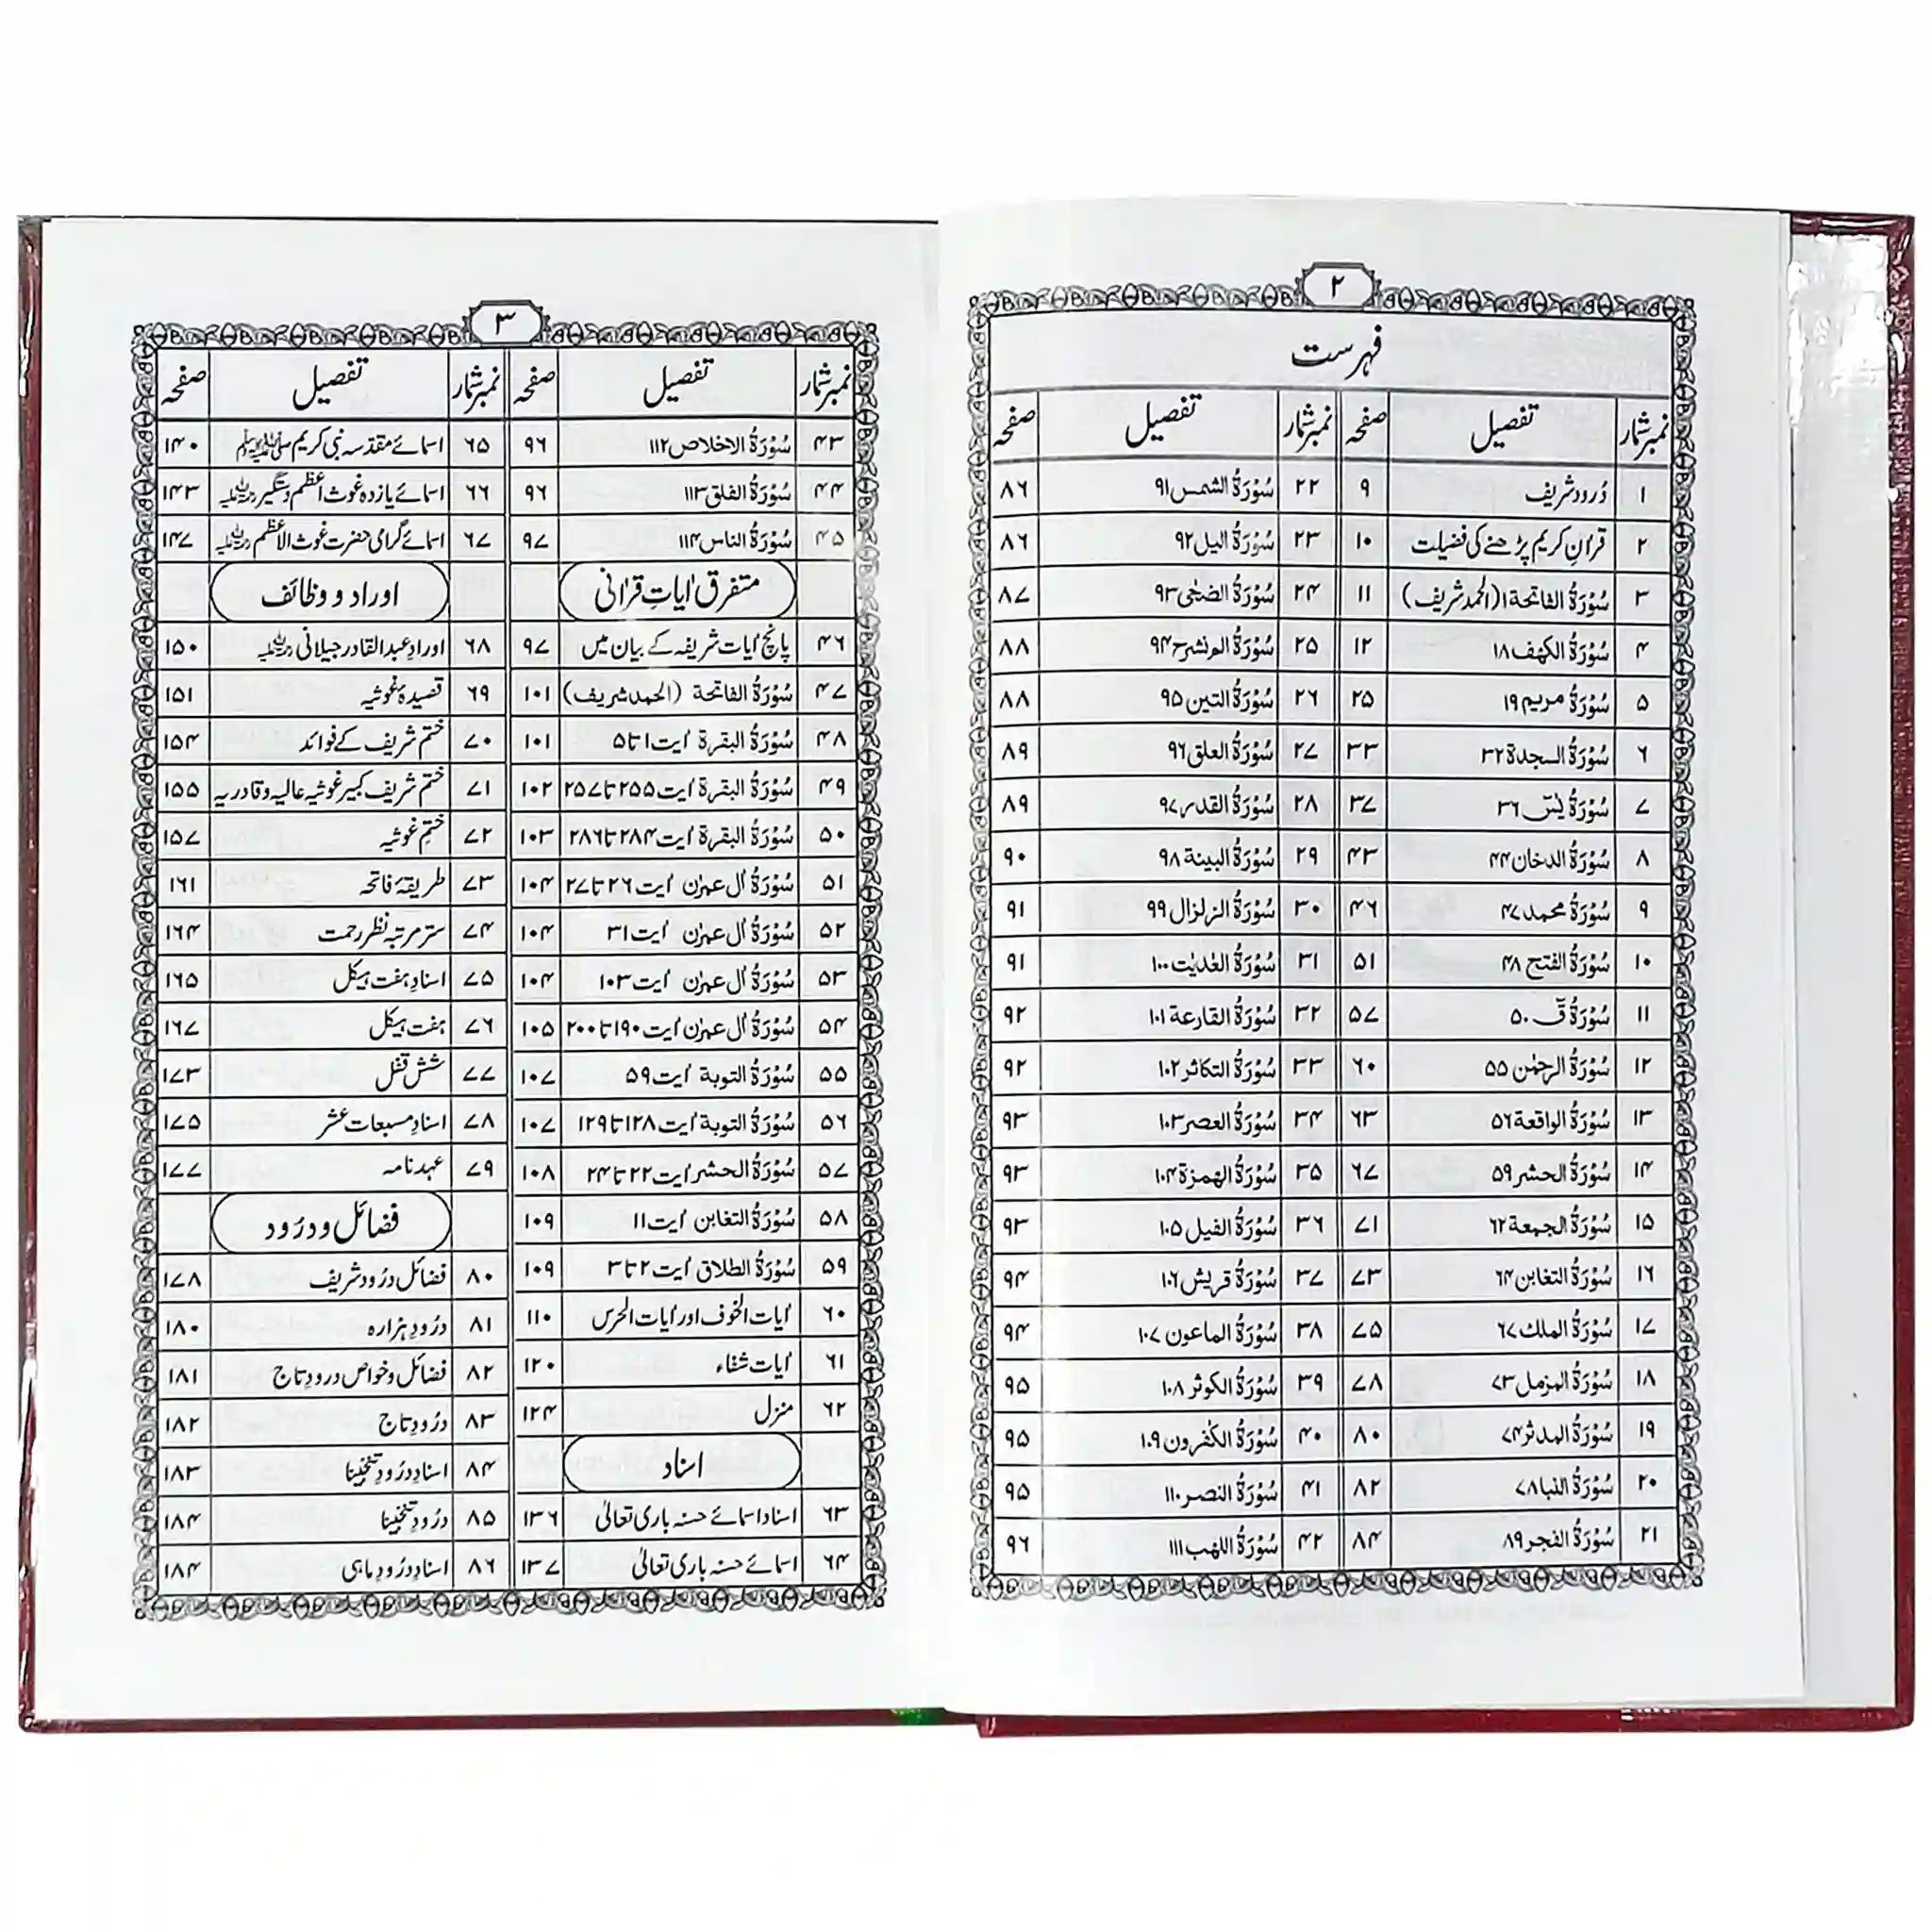 ۲
فہرست
نمبر شمار تفصیل صفحہ نمبر شمار تفصیل صفحہ
۱ دُرود شریف ۹ ۲۲ سُوْرَةُ الشمس ۹۱ ۸۶
۲ قرآنِ کریم پڑھنے کی فضیلت ۱۰ ۲۳ سُوْرَةُ الیل ۹۲ ۸۶
۳ سُوْرَةُ الفاتحة ۱ (الحمد شریف) ۱۱ ۲۴ سُوْرَةُ الضحٰی ۹۳ ۸۷
۴ سُوْرَةُ الکهف ۱۸ ۱۲ ۲۵ سُوْرَةُ الم نشرح ۹۴ ۸۸
۵ سُوْرَةُ مریم ۱۹ ۲۵ ۲۶ سُوْرَةُ التین ۹۵ ۸۸
۶ سُوْرَةُ السجدة ۳۲ ۳۳ ۲۷ سُوْرَةُ العلق ۹۶ ۸۹
۷ سُوْرَةُ یٰسٓ ۳۶ ۳۷ ۲۸ سُوْرَةُ القدر ۹۷ ۸۹
۸ سُوْرَةُ الدخان ۴۴ ۴۳ ۲۹ سُوْرَةُ البینة ۹۸ ۹۰
۹ سُوْرَةُ محمد ۴۷ ۴۶ ۳۰ سُوْرَةُ الزلزال ۹۹ ۹۱
۱۰ سُوْرَةُ الفتح ۴۸ ۵۱ ۳۱ سُوْرَةُ العٰدیٰت ۱۰۰ ۹۱
۱۱ سُوْرَةُ قٓ ۵۰ ۵۷ ۳۲ سُوْرَةُ القارعة ۱۰۱ ۹۲
۱۲ سُوْرَةُ الرحمٰن ۵۵ ۶۰ ۳۳ سُوْرَةُ التکاثر ۱۰۲ ۹۲
۱۳ سُوْرَةُ الواقعة ۵۶ ۶۳ ۳۴ سُوْرَةُ العصر ۱۰۳ ۹۳
۱۴ سُوْرَةُ الحشر ۵۹ ۶۷ ۳۵ سُوْرَةُ الهمزة ۱۰۴ ۹۳
۱۵ سُوْرَةُ الجمعة ۶۲ ۷۱ ۳۶ سُوْرَةُ الفیل ۱۰۵ ۹۳
۱۶ سُوْرَةُ التغابن ۶۴ ۷۳ ۳۷ سُوْرَةُ قریش ۱۰۶ ۹۴
۱۷ سُوْرَةُ الملك ۶۷ ۷۵ ۳۸ سُوْرَةُ الماعون ۱۰۷ ۹۴
۱۸ سُوْرَةُ المزمل ۷۳ ۷۸ ۳۹ سُوْرَةُ الکوثر ۱۰۸ ۹۵
۱۹ سُوْرَةُ المدثر ۷۴ ۸۰ ۴۰ سُوْرَةُ الکٰفرون ۱۰۹ ۹۵
۲۰ سُوْرَةُ النبا ۷۸ ۸۲ ۴۱ سُوْرَةُ النصر ۱۱۰ ۹۵
۲۱ سُوْرَةُ الفجر ۸۹ ۸۴ ۴۲ سُوْرَةُ اللهب ۱۱۱ ۹۶
۳
نمبر شمار تفصیل صفحہ نمبر شمار تفصیل صفحہ
۴۳ سُوْرَةُ الاخلاص ۱۱۲ ۹۶ ۶۵ اسمائے مقدسہ نبی کریم ﷺ ۱۴۰
۴۴ سُوْرَةُ الفلق ۱۱۳ ۹۶ ۶۶ اسمائے یازدہ غوث اعظم دستگیر رحمۃ اللہ علیہ ۱۴۳
۴۵ سُوْرَةُ الناس ۱۱۴ ۹۷ ۶۷ اسمائے گرامی حضرت غوث الاعظم رحمۃ اللہ علیہ ۱۴۷
متفرق اٰیاتِ قراٰنی اوراد و وظائف
۴۶ پانچ اٰیات شریفہ کے بیان میں ۹۷ ۶۸ اورادِ عبدالقادر جیلانی رحمۃ اللہ علیہ ۱۵۰
۴۷ سُوْرَةُ الفاتحة (الحمد شریف) ۱۰۱ ۶۹ قصیدۂ غوثیہ ۱۵۱
۴۸ سُوْرَةُ البقرة اٰیت ۱ تا ۵ ۱۰۱ ۷۰ ختم شریف کے فوائد ۱۵۴
۴۹ سُوْرَةُ البقرة اٰیت ۲۵۵ تا ۲۵۷ ۱۰۲ ۷۱ ختم شریف کبیر غوثیہ عالیہ و قادریہ ۱۵۵
۵۰ سُوْرَةُ البقرة اٰیت ۲۸۴ تا ۲۸۶ ۱۰۳ ۷۲ ختمِ غوثیہ ۱۵۷
۵۱ سُوْرَةُ اٰل عمرٰن اٰیت ۲۶ تا ۲۷ ۱۰۴ ۷۳ طریقۂ فاتحہ ۱۶۱
۵۲ سُوْرَةُ اٰل عمرٰن اٰیت ۳۱ ۱۰۴ ۷۴ ستر مرتبہ نظر رحمت ۱۶۴
۵۳ سُوْرَةُ اٰل عمرٰن اٰیت ۱۰۳ ۱۰۴ ۷۵ اسنادِ ہفت ہیکل ۱۶۵
۵۴ سُوْرَةُ اٰل عمرٰن اٰیت ۱۹۰ تا ۲۰۰ ۱۰۵ ۷۶ ہفت ہیکل ۱۶۷
۵۵ سُوْرَةُ التوبة اٰیت ۵۹ ۱۰۷ ۷۷ شش قفل ۱۷۳
۵۶ سُوْرَةُ التوبة اٰیت ۱۲۸ تا ۱۲۹ ۱۰۷ ۷۸ اسنادِ مسبعات عشر ۱۷۵
۵۷ سُوْرَةُ الحشر اٰیت ۲۲ تا ۲۴ ۱۰۸ ۷۹ عہد نامہ ۱۷۷
فضائل و درُود
۵۸ سُوْرَةُ التغابن اٰیت ۱۱ ۱۰۹
۵۹ سُوْرَةُ الطلاق اٰیت ۲ تا ۳ ۱۰۹ ۸۰ فضائل درُود شریف ۱۷۸
۶۰ اٰیات الخوف اور اٰیات الحرس ۱۱۰ ۸۱ درُودِ ہزارہ ۱۸۰
۶۱ اٰیات شفاء ۱۲۰ ۸۲ فضائل و خواص درودِ تاج ۱۸۱
۶۲ منزل ۱۲۴ ۸۳ درُودِ تاج ۱۸۲
اسناد
۸۴ اسنادِ درُودِ تنجینا ۱۸۳
۶۳ اسناد اسمائے حسنہ باری تعالیٰ ۱۳۶ ۸۵ درُودِ تنجینا ۱۸۴
۶۴ اسمائے حسنہ باری تعالیٰ ۱۳۷ ۸۶ اسنادِ درُودِ ماہی ۱۸۴